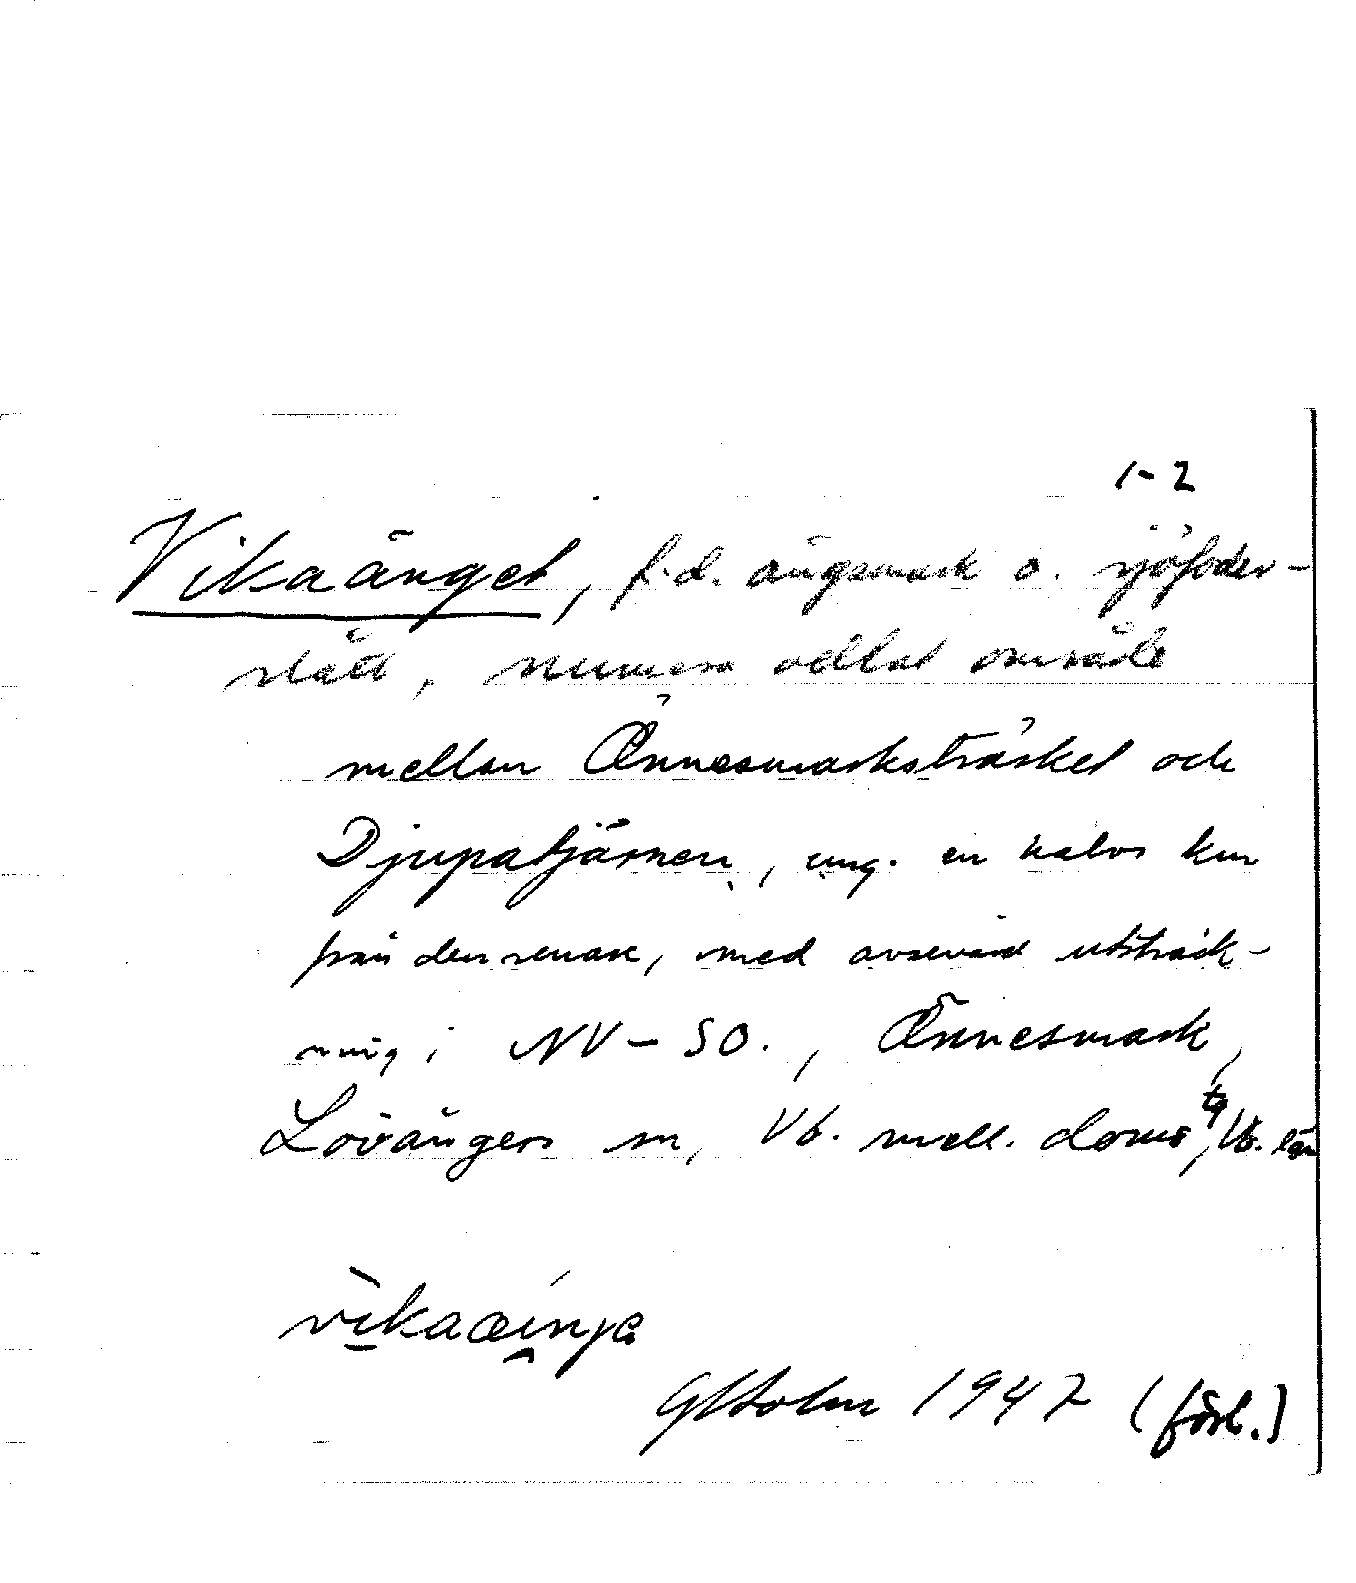 1-2
Vikaänget, f.d. ängsmark o. sjöfoder-
slått, numera odlat område
mellan Önnesmarksträsket och
Djupatjärnen, ung. en halv km
från den senare, med avsevärd utsträck-
ning i NV–SO., Önnesmark,
Lövångers sn, Vb. mell. doms tg, Vb. län
GHolm 1947 (förk.)